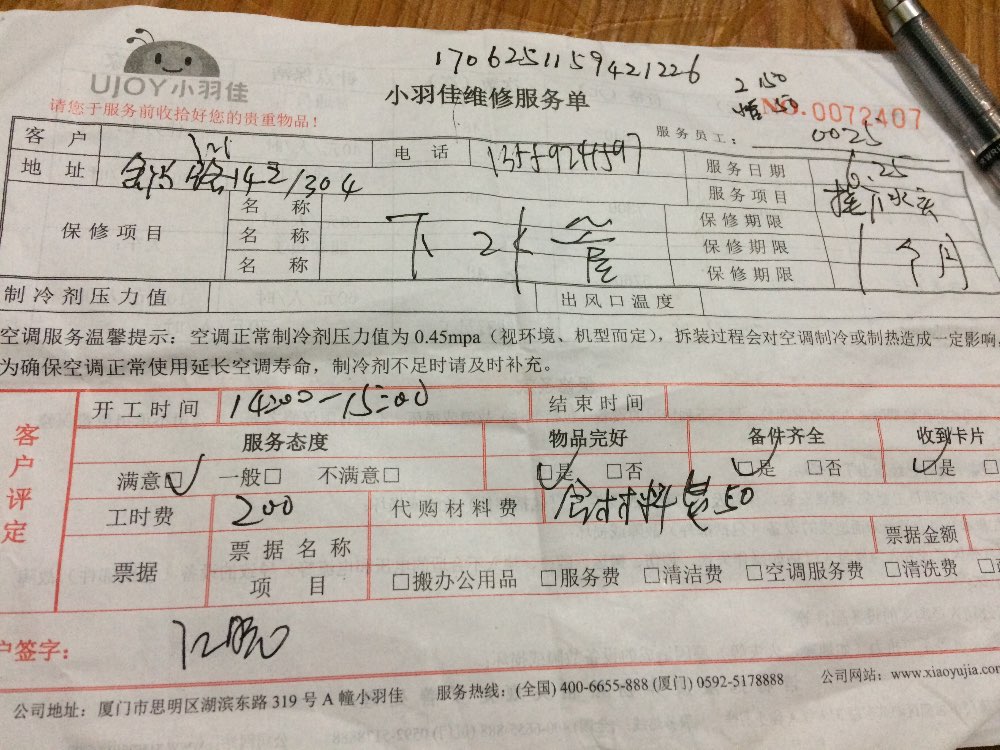 1706251159421226
UJOY小羽佳
小羽佳维修服务单
2.150
50
NO.0072407
请您于服务前收拾好您的贵重物品!
服务员工: 0025
客 户
电 话 13559241597
服务日期 6.25
地 址 14 304
服务项目
保修项目
名 称
保修期限
名 称
保修期限
名 称
保修期限
1个月
制冷剂压力值
出风口温度
空调服务温馨提示:空调正常制冷剂压力值为 0.45mpa(视环境、机型而定),拆装过程会对空调制冷或制热造成一定影响,
为确保空调正常使用延长空调寿命,制冷剂不足时请及时补充。
客户评定
开工时间 14:00-15:00
结束时间
服务态度
物品完好
备件齐全
收到卡片
满意□ 一般□ 不满意□
□是 □否
□是 □否
□是
工时费 200
代购材料费 含材料费50
票据
票据名称
票据金额
项 目
□搬办公用品 □服务费 □清洁费 □空调服务费 □清洗费
户签字:
公司地址:厦门市思明区湖滨东路 319 号 A 幢小羽佳 服务热线:(全国) 400-6655-888 (厦门) 0592-5178888 公司网站:www.xiaoyujia.com